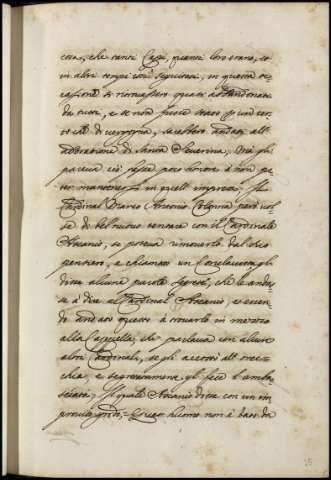 cosa, che tanti Capi, quanti loro erano, et
in altri tempi così seguitati, in questa oc¬
casione si ritrovassero quasi abbandonati
da tutti, e se non fusse stato per un cer¬
to che di vergogna, sarebbero andati all'
adoratione di Santa Severina; Mà gli
pareva ciò fosse poco honore à non po¬
ter mantenersi in quell'impresa; Il
Cardinal Marco Antonio Colonna però vol¬
se di bel nuovo tentare con il Cardinale
Ascanio, se poteva rimoverlo dal suo
pensiero, e chiamato un Conclavista gli
disse alcune parole segrete, che le andas¬
se à dire al Cardinal Ascanio, et essen¬
do andato questi à trovarlo in mezzo
alla Cappella, che parlava con alcuni
altri Cardinali, se gli accostò all'orec¬
chia, e segretamente gli fece l'amba¬
sciata, Il quale Ascanio disse con un im¬
proviso grido, Questo huomo non è bast da